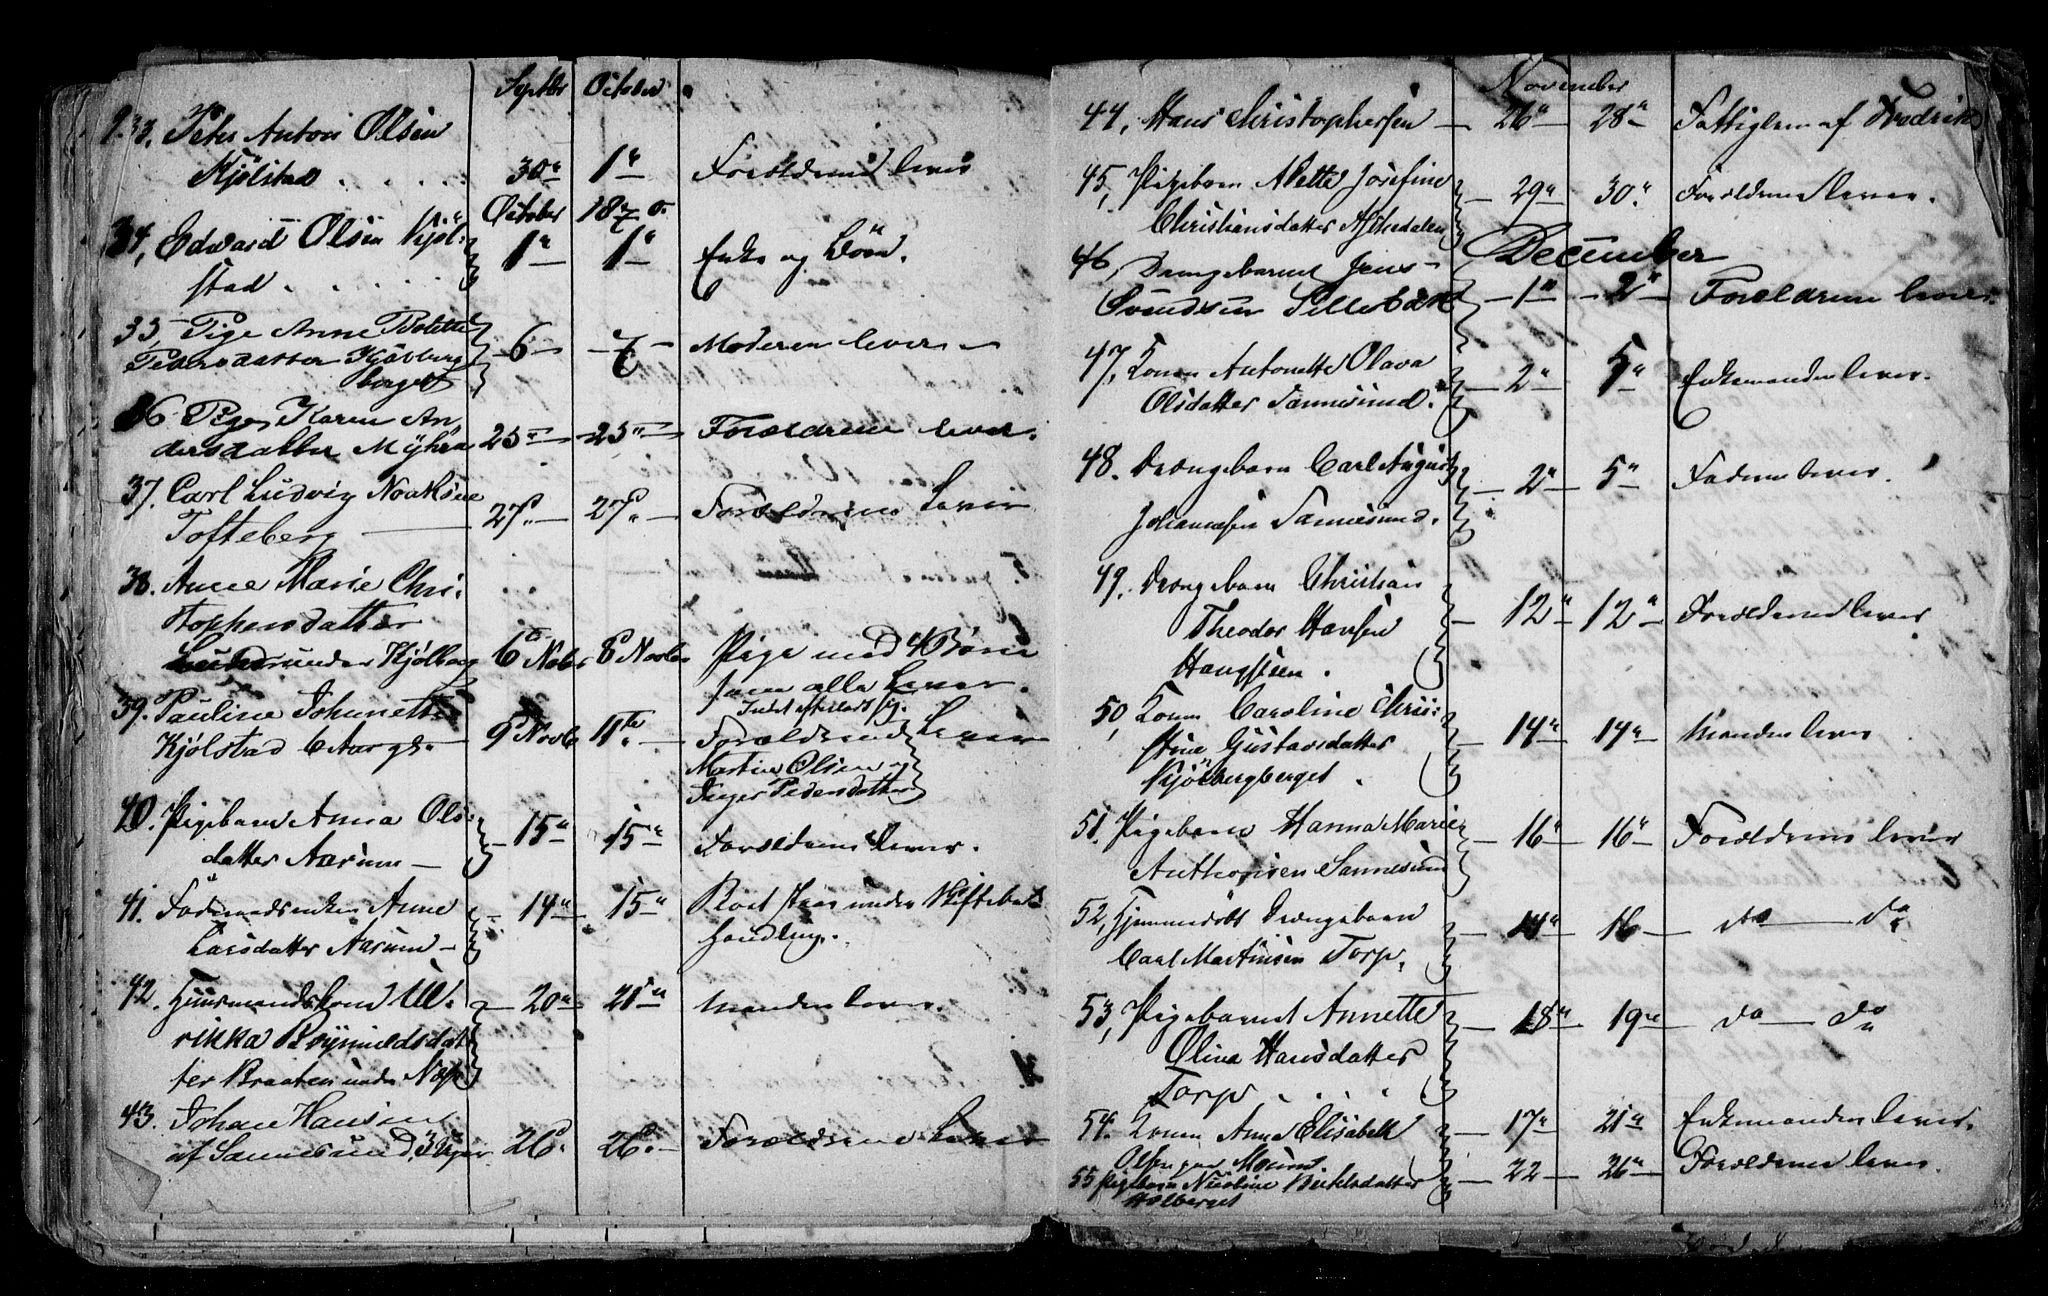 Septbr October
33. Peter Anton Olsen
Kjølstad . . . . 30" 1" Forældrene lever
October 1870.
34, Edward Olsen Kjøl-
stad . . . . 1" 1" Enke og Børn.
35, Pige Anne Bolette
Pedersdatter Kjølberg
berget 6 7 Moderen lever
36 Pige Karen An
dersdatter Myhra 25" 25" Forældrene lever.
37. Carl Ludvig Noaksen
Tofteberg 27 27 Forældrene Lever
38. Anne Marie Chri-
stophersdatter
under Kjølberg 6 Novbr 8 Novbr Pige med 4 Børn
som alle Lever.
Intet efterladt sig.
39. Pauline Johanette
Kjølstad 6 Aar gl. 9 Novbr 11te Forældrene Lever
Martin Olsen og
Inger Pedersdatter
40. Pigebarn Anna Ols-
datter Aarum 15" 15" Forældrene lever.
41. Anne
Larsdatter Aarum 14" 15" Boet staar under Skiftebe-
handling.
42. Ul-
rikka Reymildsdat
ter Braaten under 20" 21" Manden lever.
43. Johan Hansen
af Sannesund, 3 Uger 26. 26. Forældrene Lever
November
44, Hans Christophersen 26" 28" Fattiglem af Fredrik
45, Pigebarn Alette Josefine
Christiansdatter 29" 30" Forældrene lever.
December
46, Drengebarnet Jens
Svendsen 1" 2" Forældrene lever.
47, Konen Antonette Olava
Olsdatter Sannesund. 2" 5" Enkemanden lever.
48. Drengebarn Carl August
Johannesen Sannesund. 2" 5" Faderen lever.
49, Drengebarn Christian
Theodor Hansen
12" 12" Forældrene lever
50, Konen Caroline Chri-
stine Gustavsdatter
Kjølbergberget. 14" 14" Manden lever
51. Pigebarn Hanna Marie
Anthonsen Sannesund 16" 16" Forældrene lever
52, Hjemmedøbt Drengebarn
Carl Martinsen Torp. 14" 16 do do
53, Pigebarnet Annette
Oline Hansdatter
Torp . . . 18" 19" do do
54. Konen Anne Elisabeth
Olsen 17" 21" Enkemanden lever.
55 Pigebarn Nicoline 22 26" Forældrene lever.